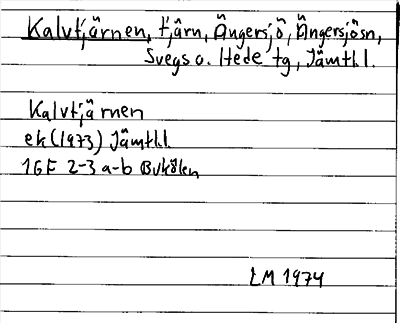 Kalvtjärnen, tjärn, Ängersjö, Ängersjösn,
Svegs o. Hede tg, Jämtl.l.
Kalvtjärnen
ek (1973) Jämtl.l.
16E 2-3 a-b Bukölen
LM 1974